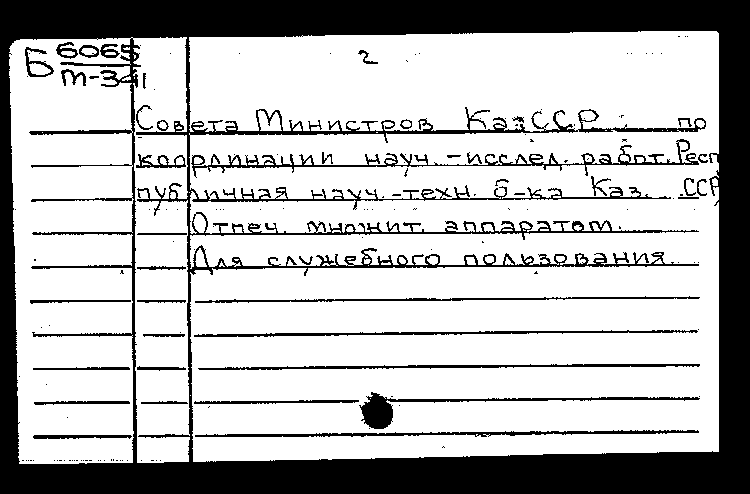 Б 6065
т-341
2
Совета Министров КазССР : по
координации науч.-исслед. работ. Респ
публичная науч.-техн. б-ка Каз. ССР
Отпеч. множит. аппаратом.
Для служебного пользования.